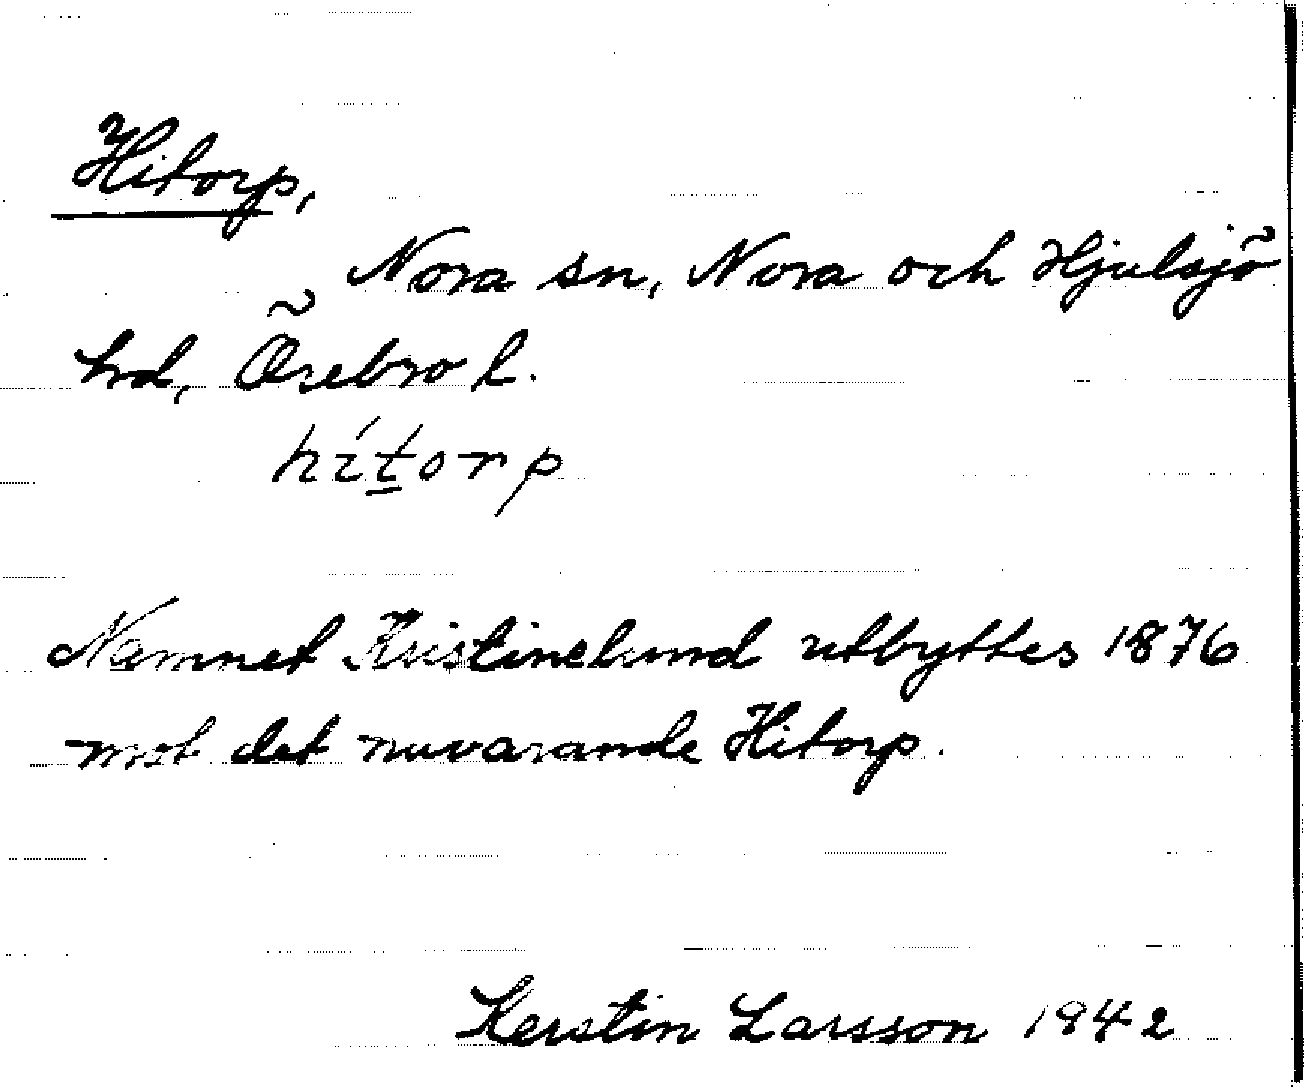 Hitorp,
Nora sn, Nora och Hjulsjö
hrd, Örebro l.
hítorp
Namnet Kristinelund utbyttes 1876
mot det nuvarande Hitorp.
Kerstin Larsson 1942